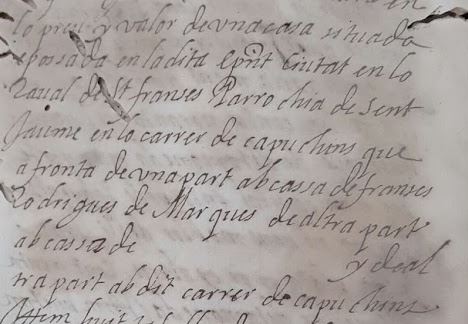 en
lo preu y valor de vna casa situada
e possada en la dita e pñt ciutat en lo
Raual de St franses Parrochia de sent
Jaume en lo carrer de capuchins que
afronta de vna part ab cassa de franses
Rodrigues de Marques de altra part
ab cassa de y de al
tra part ab dit carrer de capuchins
Ittem huit